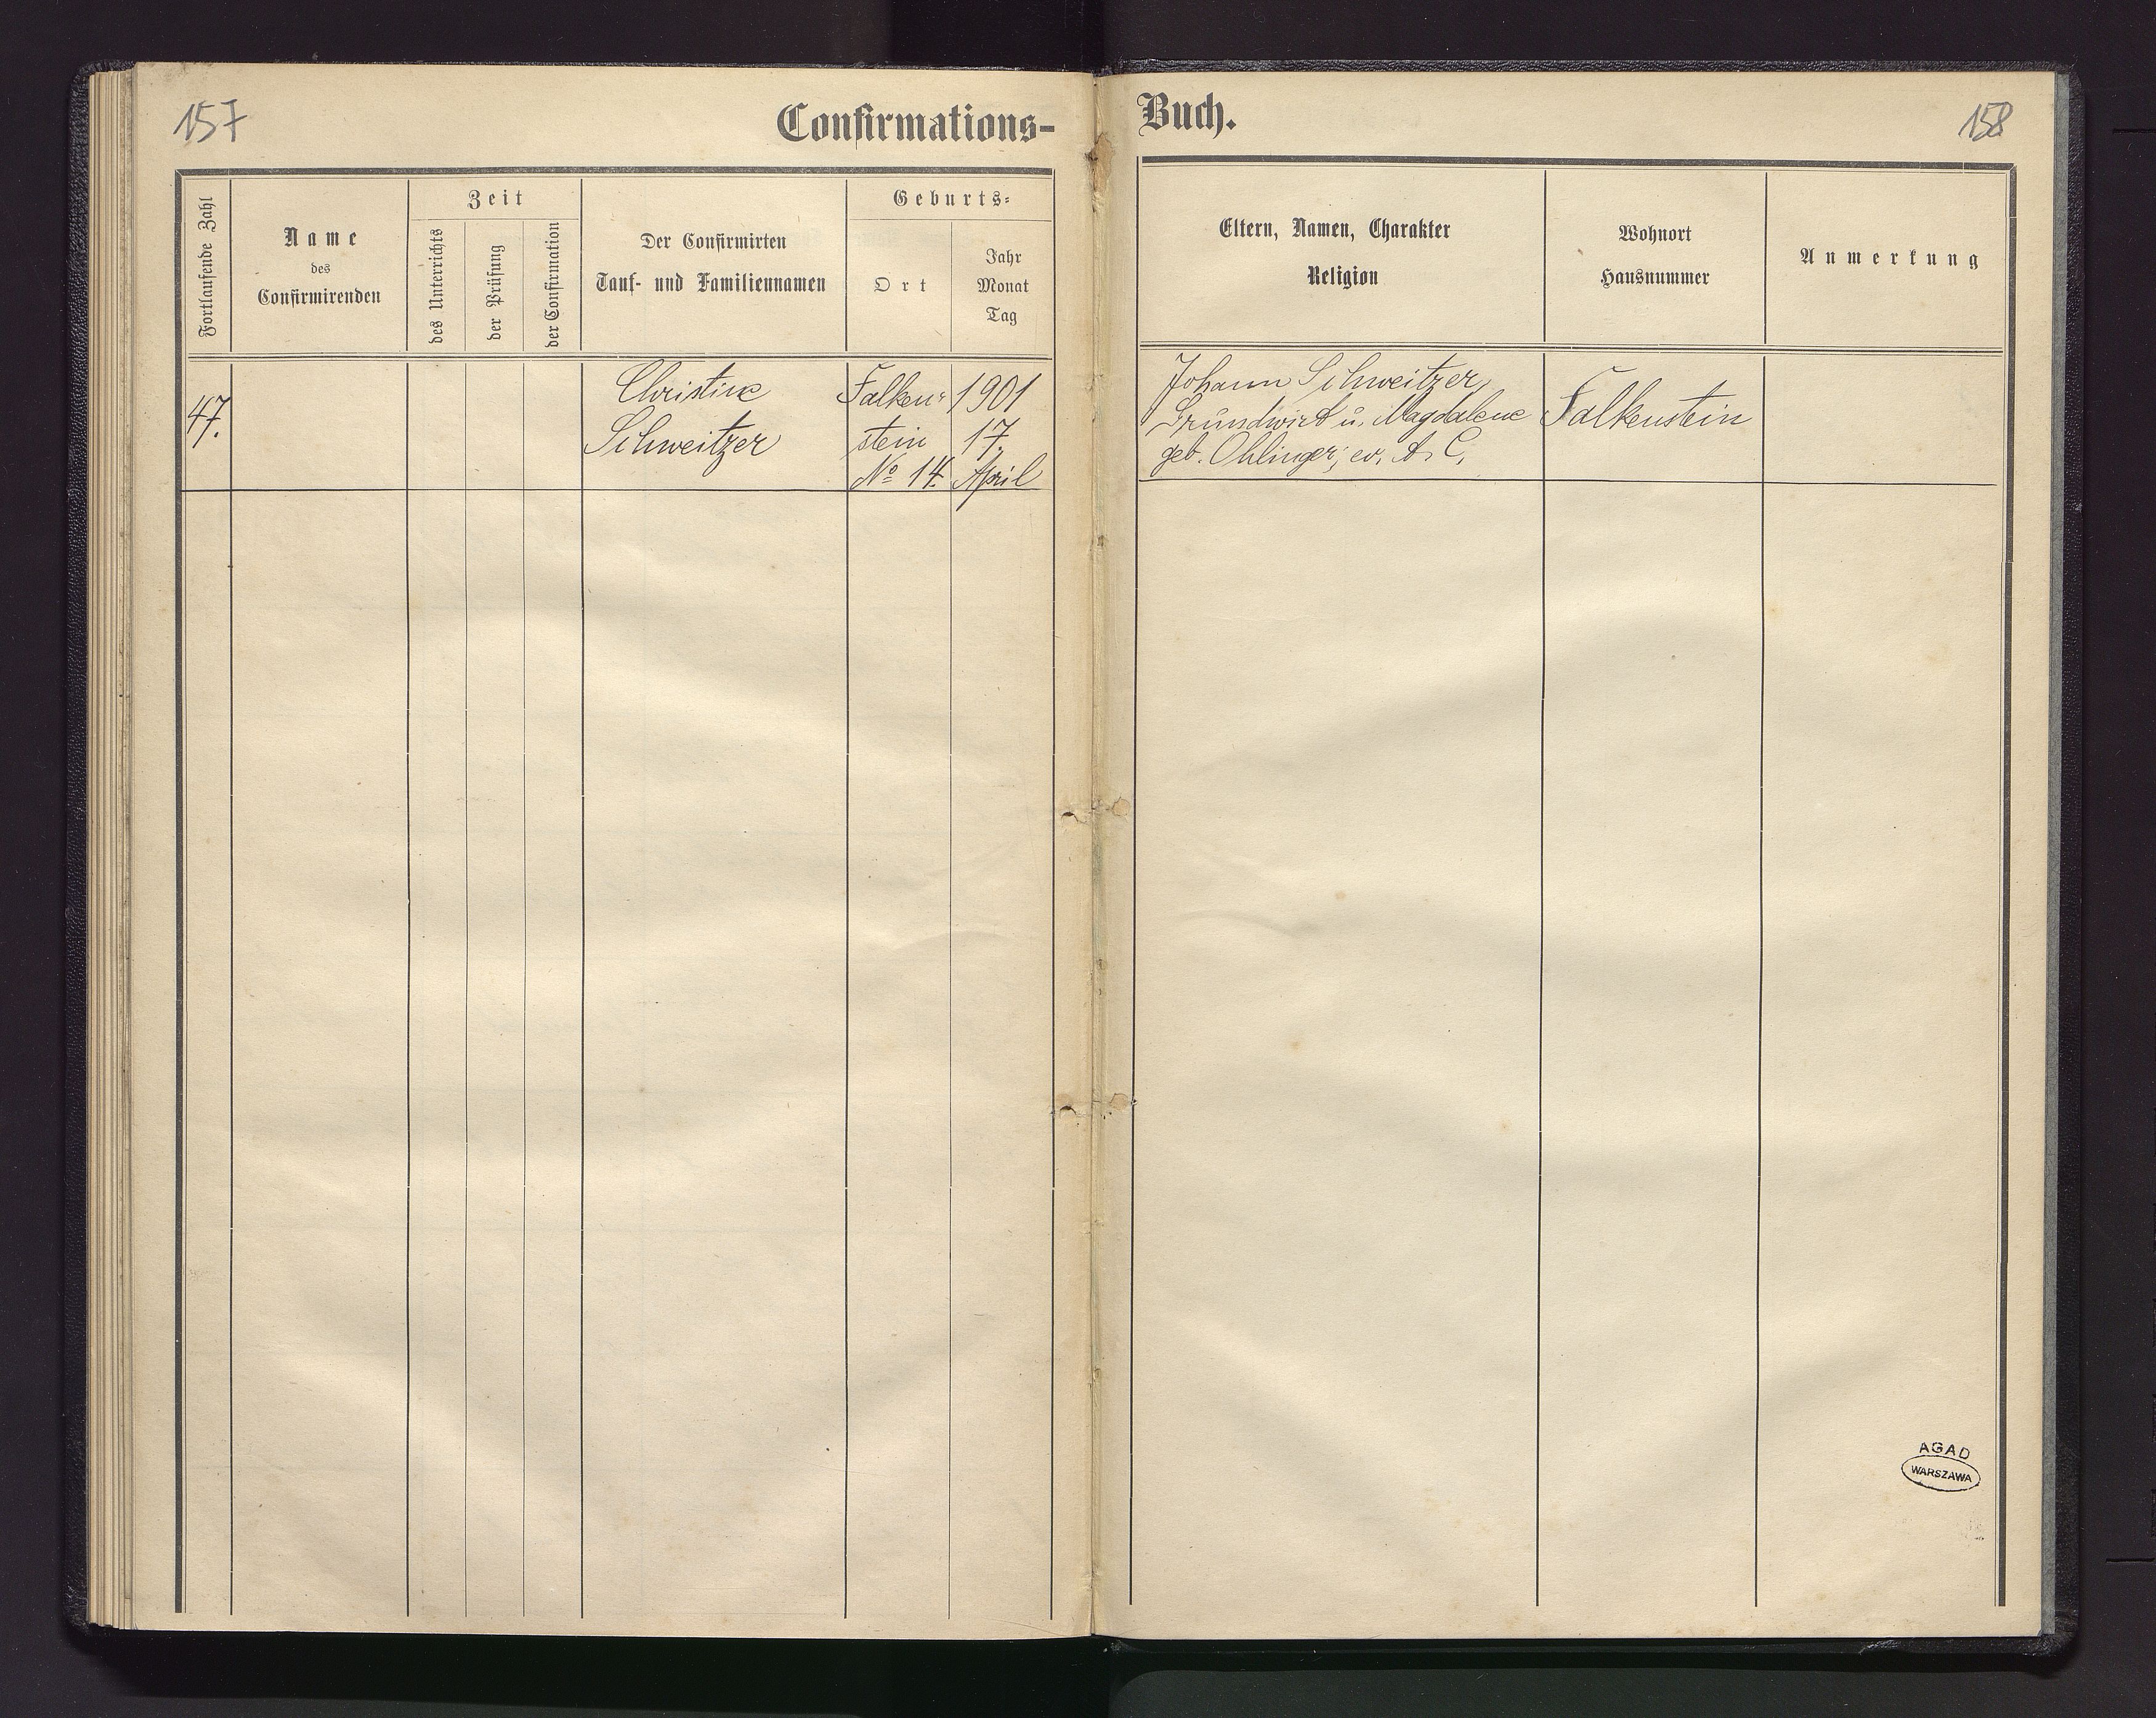 157
Confirmations-
Fortlaufende Zahl
Name
des
Confirmirenden
Zeit
des Unterrichts
der Prüfung
der Confirmation
Der Confirmirten
Tauf- und Familiennamen
Geburts-
Ort
Jahr
Monat
Tag
47.
Christine
Schweitzer
Falken-
stein
No 14.
1901
17.
April
Buch.
158
Eltern, Namen, Charakter
Religion
Wohnort
Hausnummer
Anmerkung
Johann Schweitzer,
Grundwirt u. Magdalene
geb. Ohlinger; ev. A. C.
Falkenstein
AGAD
WARSZAWA